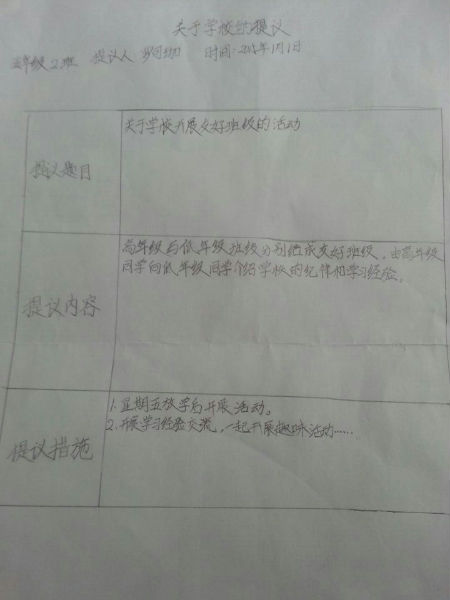 关于学校的提议
五年级2班 提议人 时间:年1月1日
提议题目
关于学校开展友好班级的活动
提议内容
高年级与低年级班级分别结成友好班级,由高年级
同学向低年级同学介绍学校的纪律和学习经验。
提议措施
1.星期五放学后开展活动。
2.开展学习经验交流,一起开展趣味活动……